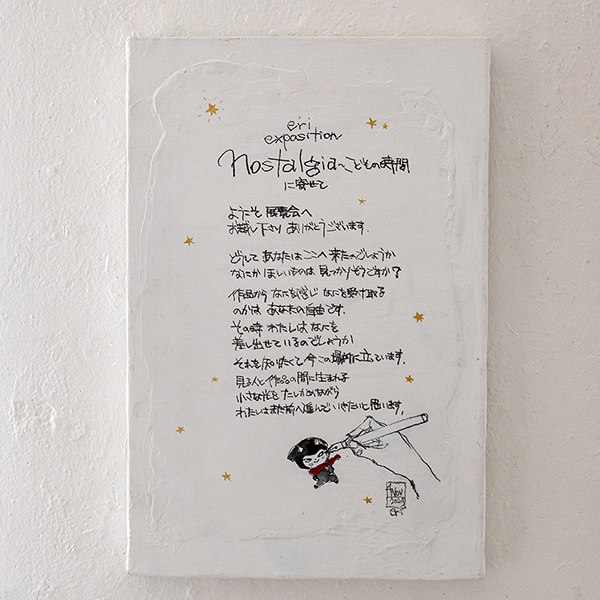 eri
exposition
Nostalgia〜こどもの時間
に寄せて
ようこそ 展覧会へ
お越し下さり ありがとうございます.
どうして あなたは ここへ 来たのでしょうか
なにか ほしいものは 見つかりそうですか?
作品から なにを感じ なにを受け取る
のかは あなたの自由です.
その時 わたしは なにを
差し出せているのでしょうか
それを知りたくて 今 この場所に立っています.
見る人と作品の間に生まれる
小さな光を たしかめながら
わたしはまた前へ進んでいきたいと思います.
Nov
eri